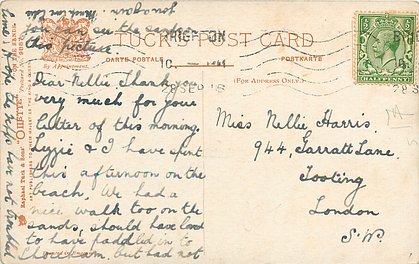 you again. Much love from
You can see the sands in
this picture.
TUCK'S POST CARD
By Appointment.
CARTE POSTALE
POSTKARTE
(For Address Only.)
BRIGHTON
28 SEP 16
HALFPENNY
Raphael Tuck & Sons' "OILETTE"
Dear Nellie, Thank you
very much for your
letter of this morning.
& I have spent
this afternoon on the
beach. We had a
nice walk too on the
sands, should have loved
to have paddled in to
Shoreham, but had not
time. I hope the Zepps have not troubled
Miss Nellie Harris.
944, Garratt Lane.
Tooting
London
S.W.